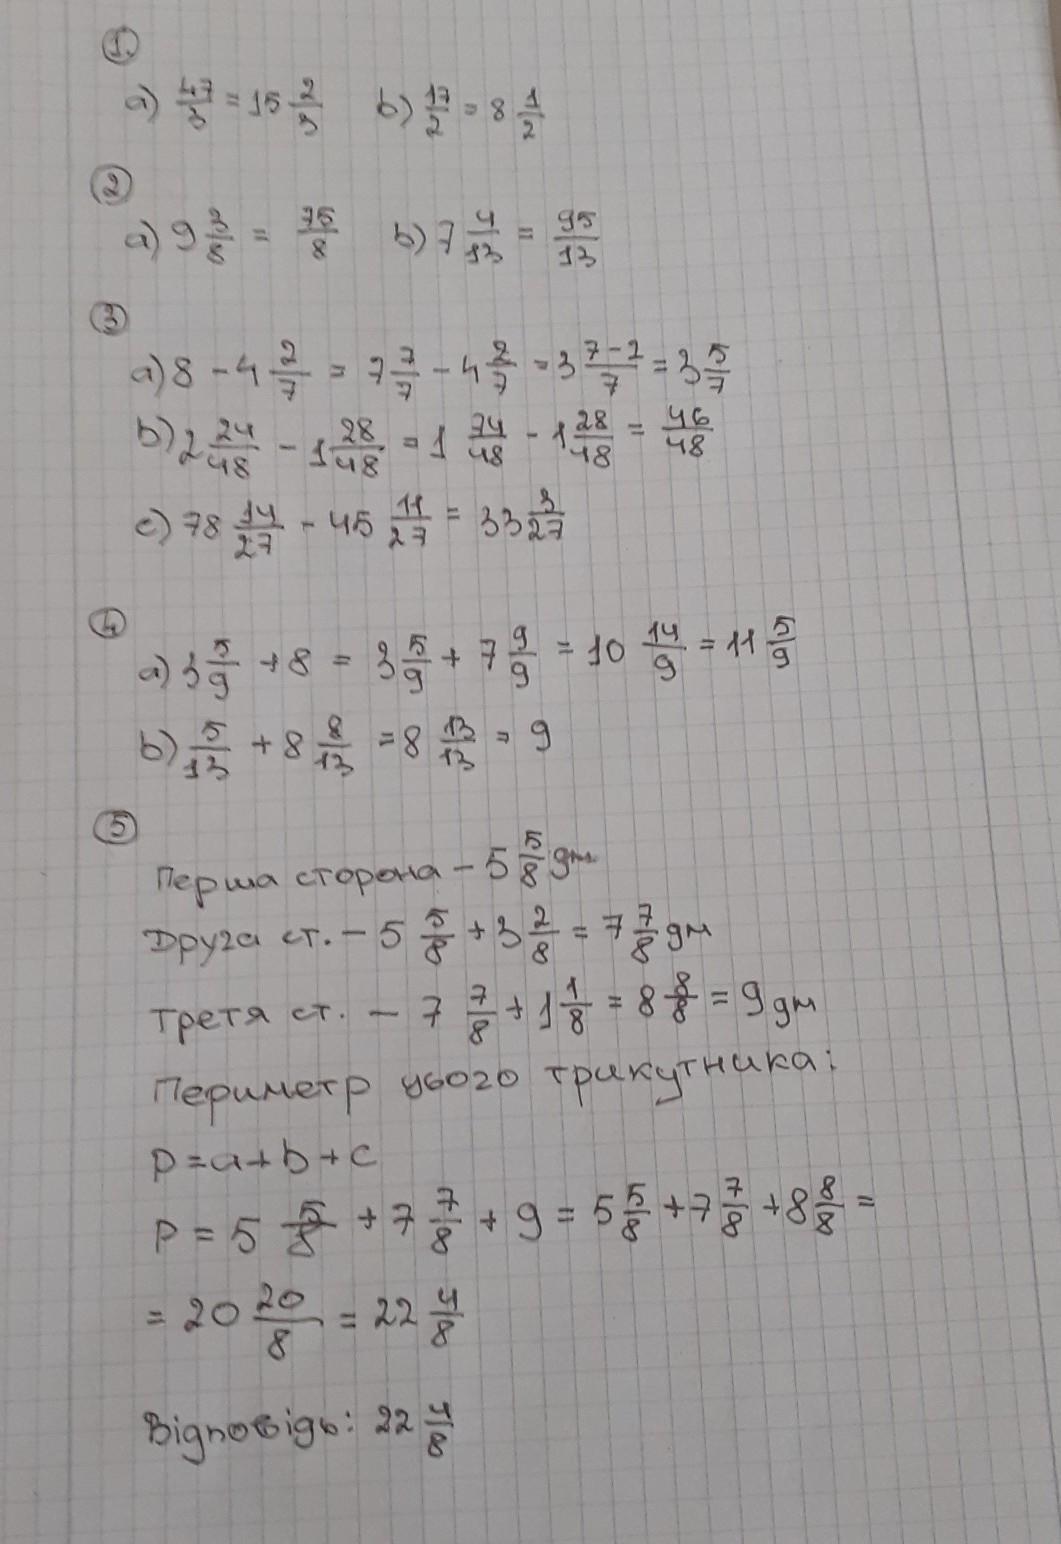 1
a) 47/3 = 15 2/3 b) 17/2 = 8 1/2
2
a) 9 3/8 = 75/8 b) 7 4/13 = 95/13
3
a) 8 - 4 2/7 = 7 7/7 - 4 2/7 = 3 7-2/7 = 3 5/7
b) 2 24/48 - 1 28/48 = 1 74/48 - 1 28/48 = 46/48
c) 78 14/27 - 45 11/27 = 33 3/27
4
a) 3 5/9 + 8 = 3 5/9 + 7 9/9 = 10 14/9 = 11 5/9
b) 5/13 + 8 8/13 = 8 13/13 = 9
5
Перша сторона - 5 5/8 дм
Друга ст. - 5 5/8 + 3 2/8 = 7 7/8 дм
Третя ст. - 7 7/8 + 1 1/8 = 8 8/8 = 9 дм
Периметр цього трикутника:
P = a + b + c
P = 5 5/8 + 7 7/8 + 9 = 5 5/8 + 7 7/8 + 8 8/8 =
= 20 20/8 = 22 4/8
Відповідь: 22 4/8